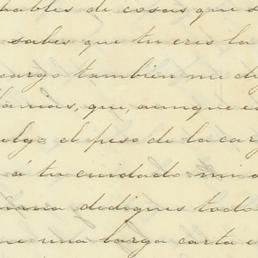 hables de cosas que s
sabes que tu eres la
cargo tambien mi di
que, aunque e
el peso de la car
á tu cuidado mi
dediques todo
una larga carta e